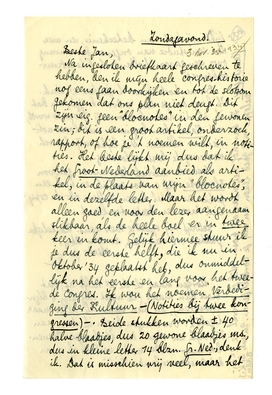 Zondagavond.
Beste Jan,
Na ingesloten briefkaart geschreven te
hebben, ben ik mijn heele congreshistorie
nog eens gaan doorkijken en tot de slotsom
gekomen dat ons plan niet deugt. Dit
zijn eig. geen "blocnotes" in den gewonen
zin; dit is een groot artikel, onderzoek,
rapport, of hoe je 't noemen wilt, in noti-
ties. Het beste lijkt mij dus dat ik
het Groot-Nederland aanbied als arti-
kel, in de plaats van mijn "blocnotes",
en in dezelfde letter. Maar het wordt
alleen goed en voor den lezer aangenaam
slikbaar, als de heele boel er in twee
keer in komt. Gelijk hiermee stuur ik
je dus de eerste helft, die ik nu in
Oktober '34 geplaatst het, dus onmiddel-
lijk na het eerste en lang voor het twee-
de congres. Ik wou het noemen: Verdedi-
ging der Kultuur – (Notities bij twee kon-
gressen) –. Beide stukken worden ± 40
halve blaadjes, dus 20 gewone blaadjes ms,
dus in kleine letter 14 blzn. Gr. Ned., denk
ik. Dat is misschien wrij veel, maar het